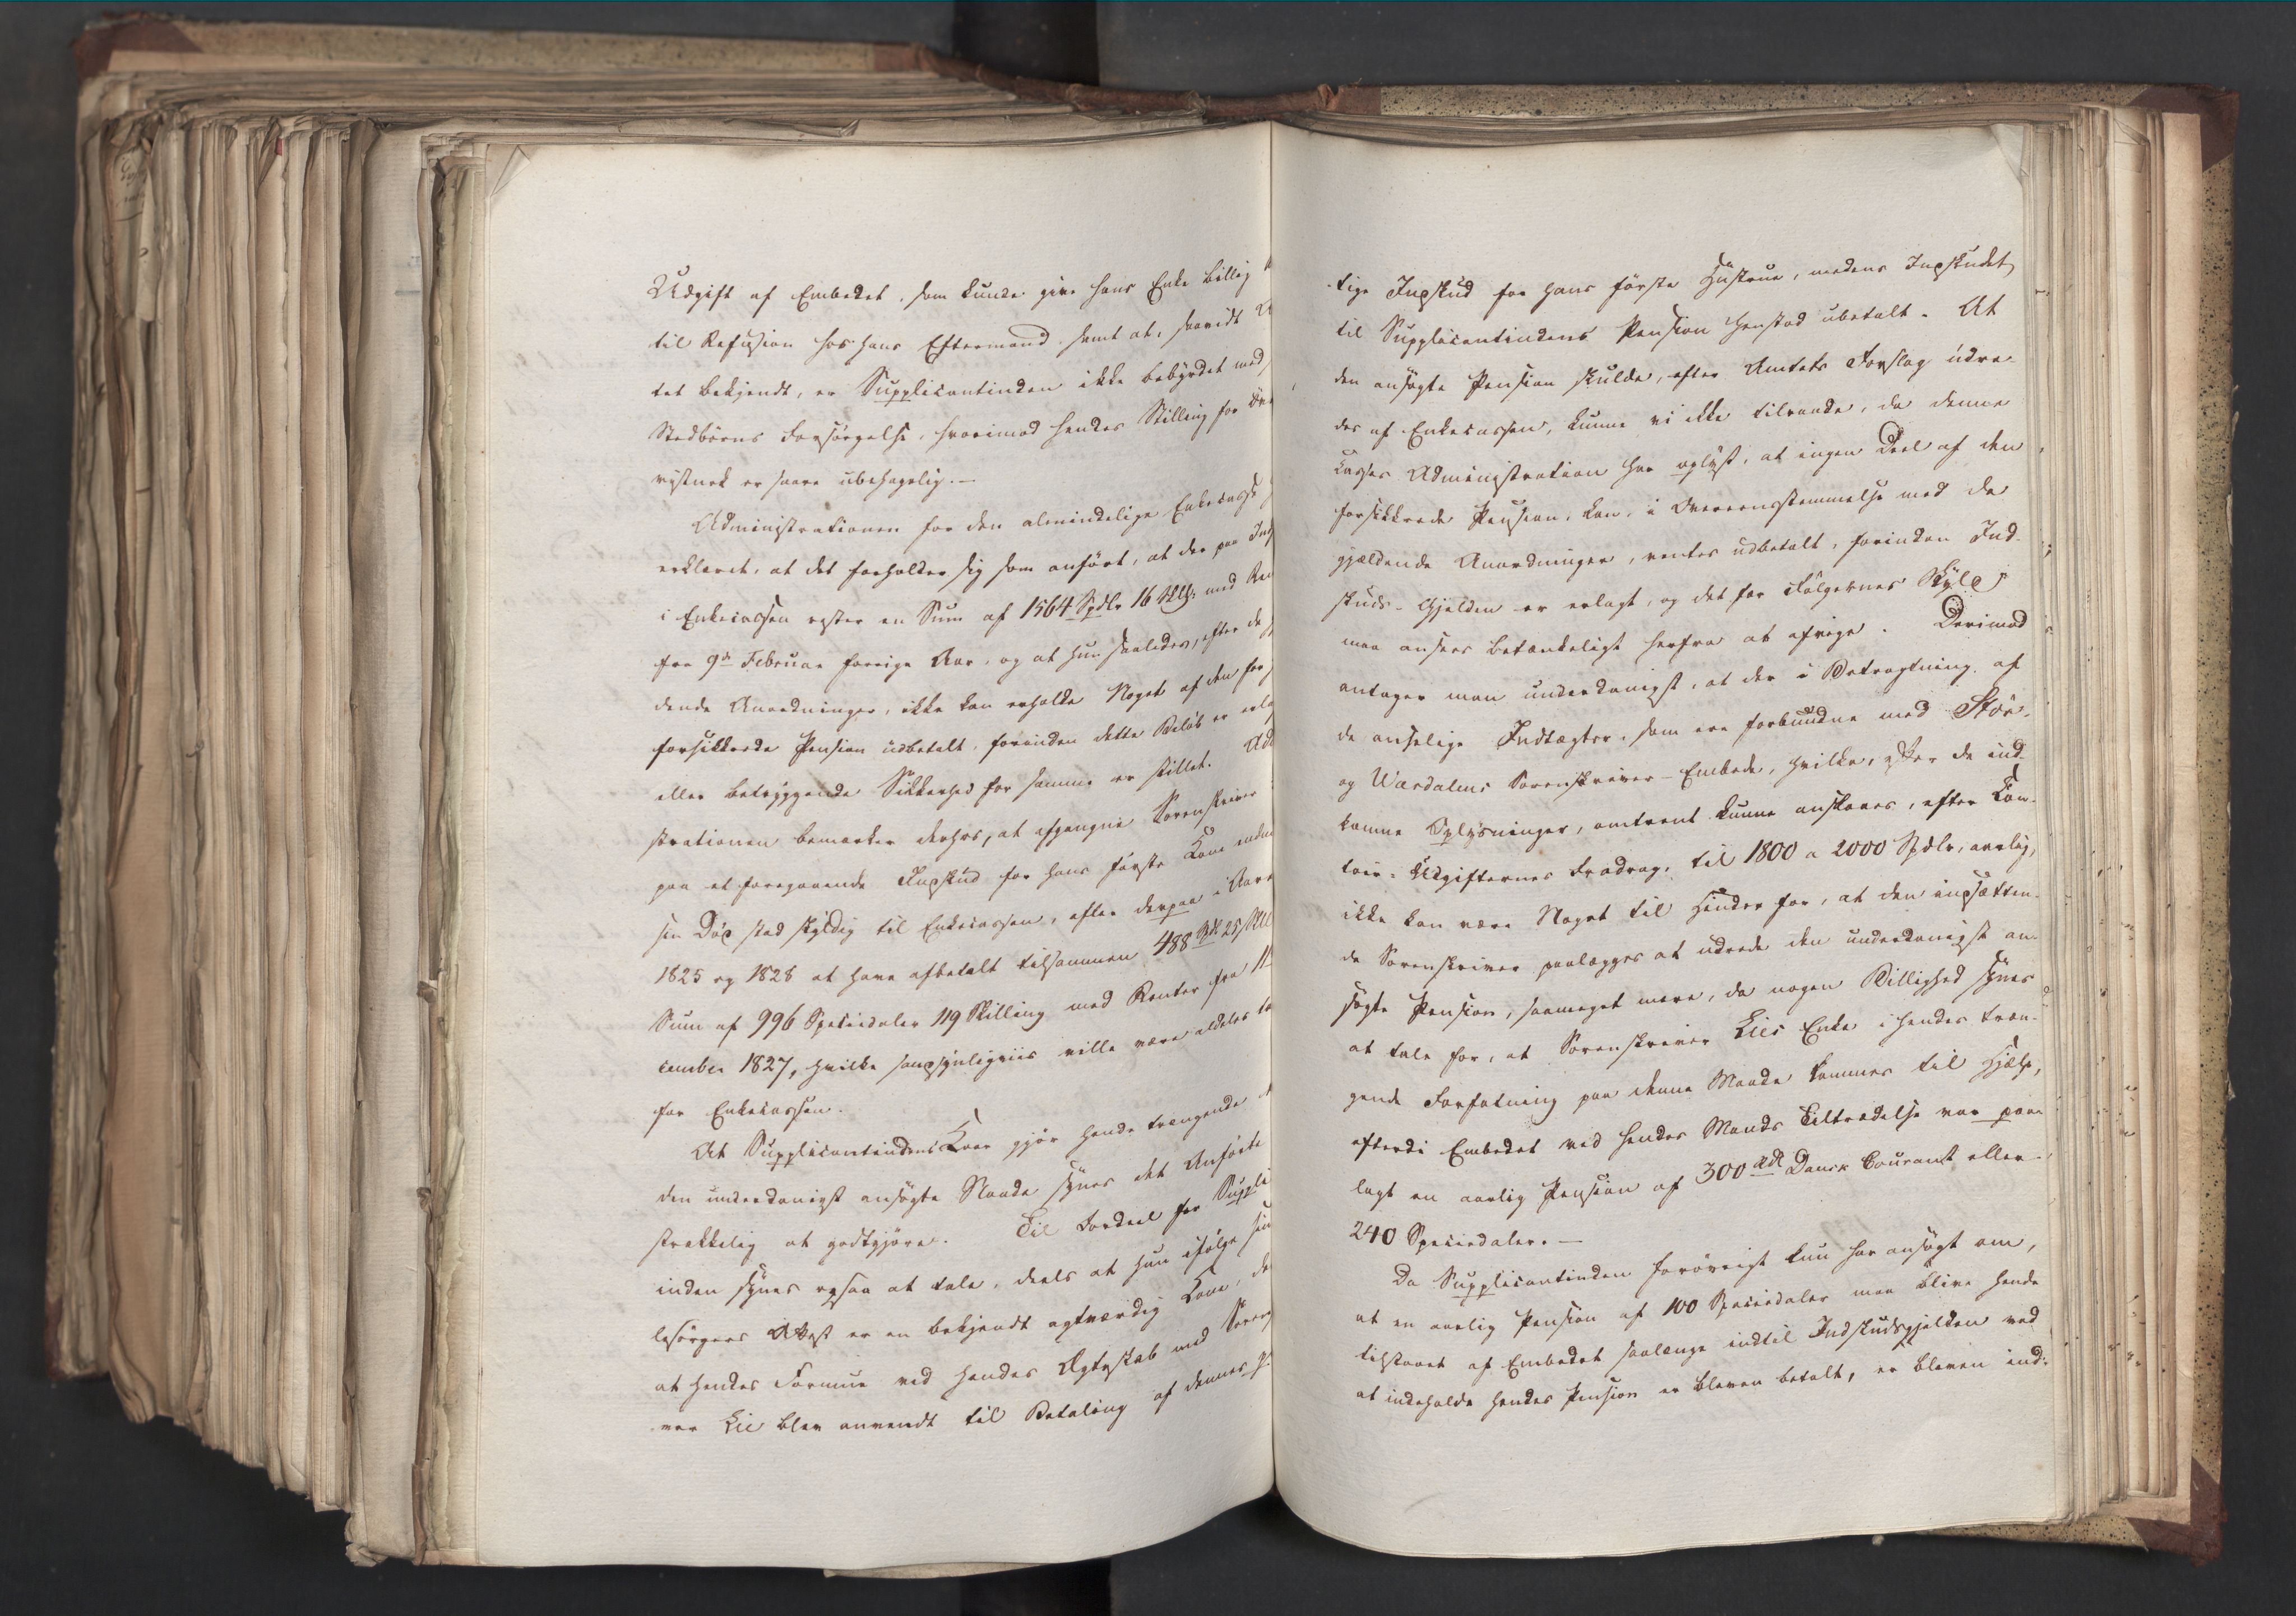 Udgift af Embedet, som kunde give hans Enke billig
til Refusion hos hans Eftermand, samt at, saavidt A
tet bekjendt, er Supplicantinden ikke bebyrdet med
Stedbørns Forsørgelse, hvorimod hendes Stilling for Øv
rigt nok er saare ubehagelig.—
Administrationen for den almindelige Enkecasse
erklæret, at det forholder sig som anført, at der paa Ind
i Enkecassen rester en Sum af 1564 Spdlr 16 Skill: med Ren
fra 9de Februar forrige Aar, og at hun saaledes, efter de
dende Anordninger, ikke kan erholde Noget af den for
forsikkrede Pension udbetalt, forinden dette Beløb er erla
eller betryggende Sikkerhed for samme er stillet. Ad
strationen bemærker derhos, at afgangne Sorenskriver
paa et foregaaende Indskud for hans første Kone endnu
sin Død stod skyldig til Enkecassen, efter derpaa i Aare
1825 og 1828 at have afbetalt tilsammen 488 Spd 25 Skill
Sum af 996 Speciedaler 119 Skilling med Renter fra 11
cember 1827, hvilke sandsynligviis ville være aldeles ta
for Enkecassen.
At Supplicantindens Kaar gjør hende trængende
den underdanigst ansøgte Naade synes det Anførte
strækkelig at godtgjøre. Til Fordeel for Suppli
inden synes ogsaa at tale, deels at hun ifølge sin
lesørgers Attest er en bekjendt agtværdig Kone, de
at hendes Formue ved hendes Ægteskab med Sorens
ver Lie blev anvendt til Betaling af dennes
tige Indskud for hans første Hustrue, medens Indskudet
til Supplicantindens Pension henstod ubetalt. At
den ansøgte Pension skulde, efter Amtets Forslag udre-
des af Enkecassen, kunne vi ikke tilraade, da denne
Casses Administration har oplyst, at ingen Deel af den
forsikkrede Pension, kan, i Overeensstemmelse med de
gjældende Anordninger, ventes udbetalt, forinden Ind-
skuds-Gjelden er erlagt, og det for Følgernes Skyld
maa ansees betænkeligt herfra at afvige. Derimod
antager man underdanigst, at der i Betragtning af
de anselige Indtægter, som ere forbundne med Stør-
og Værdalens Sorenskriver-Embede, hvilke, efter de ind-
komne Oplysninger, omtrent kunne anslaaes, efter Con-
toir-Udgifternes Fradrag, til 1800 a 2000 Spdlr, aarlig,
ikke kan være Noget til Hinder for, at den indsætten-
de Sorenskriver paalægges at udrede den underdanigst an-
søgte Pension, saameget mere, da nogen Billighed synes
at tale for, at Sorenskriver Lies Enke i hendes træn-
gende Forfatning paa denne Maade kommes til Hjælp,
efterdi Embedet ved hendes Mands Tiltrædelse var paa-
lagt en aarlig Pension af 300 Rdl Dansk Courant eller
240 Speciedaler.—
Da Supplicantinden forøvrigt kun har ansøgt om,
at en aarlig Pension af 100 Speciedaler maa blive hende
tilstaaet af Embedet saalænge indtil Indskudsgjelden ved
at indeholde hendes Pension er bleven betalt, er bleven ind-